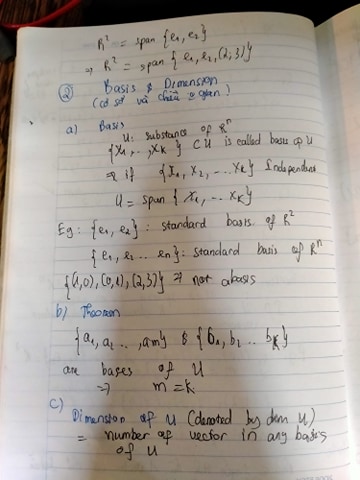 R² = span {e₁, e₂}
⇒ R² = span { e₁, e₂, (2,3)}
② Basis & Dimension
(cơ sở và chiều k gian)
a) Basis
U: substance of Rⁿ
{x₁, .., xₖ} ⊂ U is called basis of U
⇒ if {x₁, x₂, ... xₖ} Independent
U = span { x₁, ... xₖ}
Eg: {e₁, e₂} : standard basis of R²
{e₁, e₂ ... en}: standard basis of Rⁿ
{(1,0), (0,1), (2,3)} ⇒ not a basis
b) Theorem
{a₁, a₂ .. , am} & {b₁, b₂ .. bₖ}
are bases of U
⇒ m = k
c) Dimension of U (denoted by dim U)
= number of vector in any basis
of U